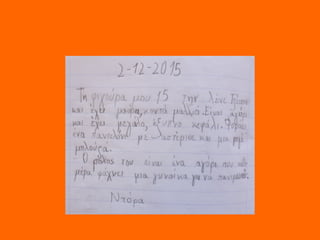 2-12-2015
Τη φιγούρα μου 15 την λένε
και έχει μαύρα, κοντά μαλλιά. Είναι αγόρι
και έχει μεγάλο, έξυπνο κεφάλι. Φοράει
ένα παντελόνι με και μια
μπλούζα.
Ο ρόλος του είναι ένα αγόρι που κάθε
μέρα ψάχνει μια γυναίκα για να παντρευτεί.
Ντόρα